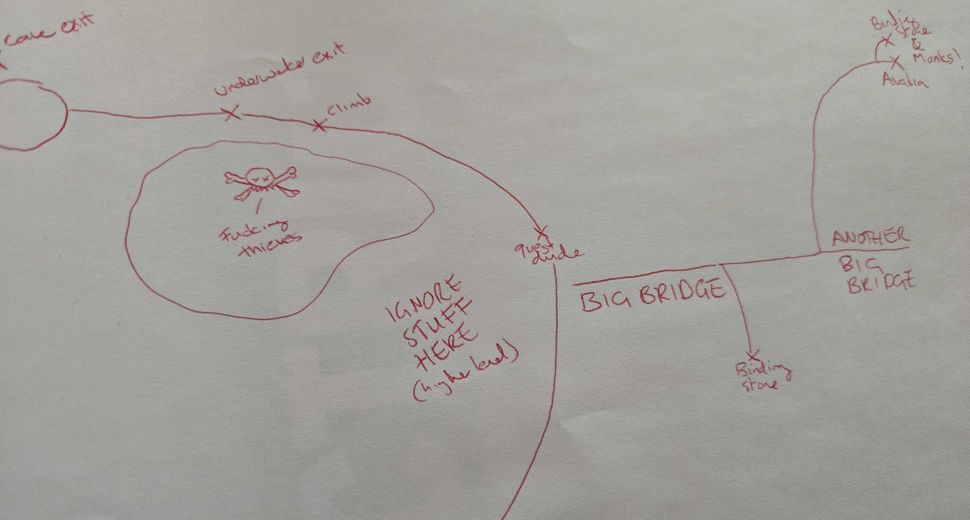 cave exit
underwater exit
climb
Fucking
thieves
quest
dude
IGNORE
STUFF
HERE
(higher level)
BIG BRIDGE
Binding
stone
ANOTHER
BIG
BRIDGE
Binding
Stone
&
Monks!
Avalia